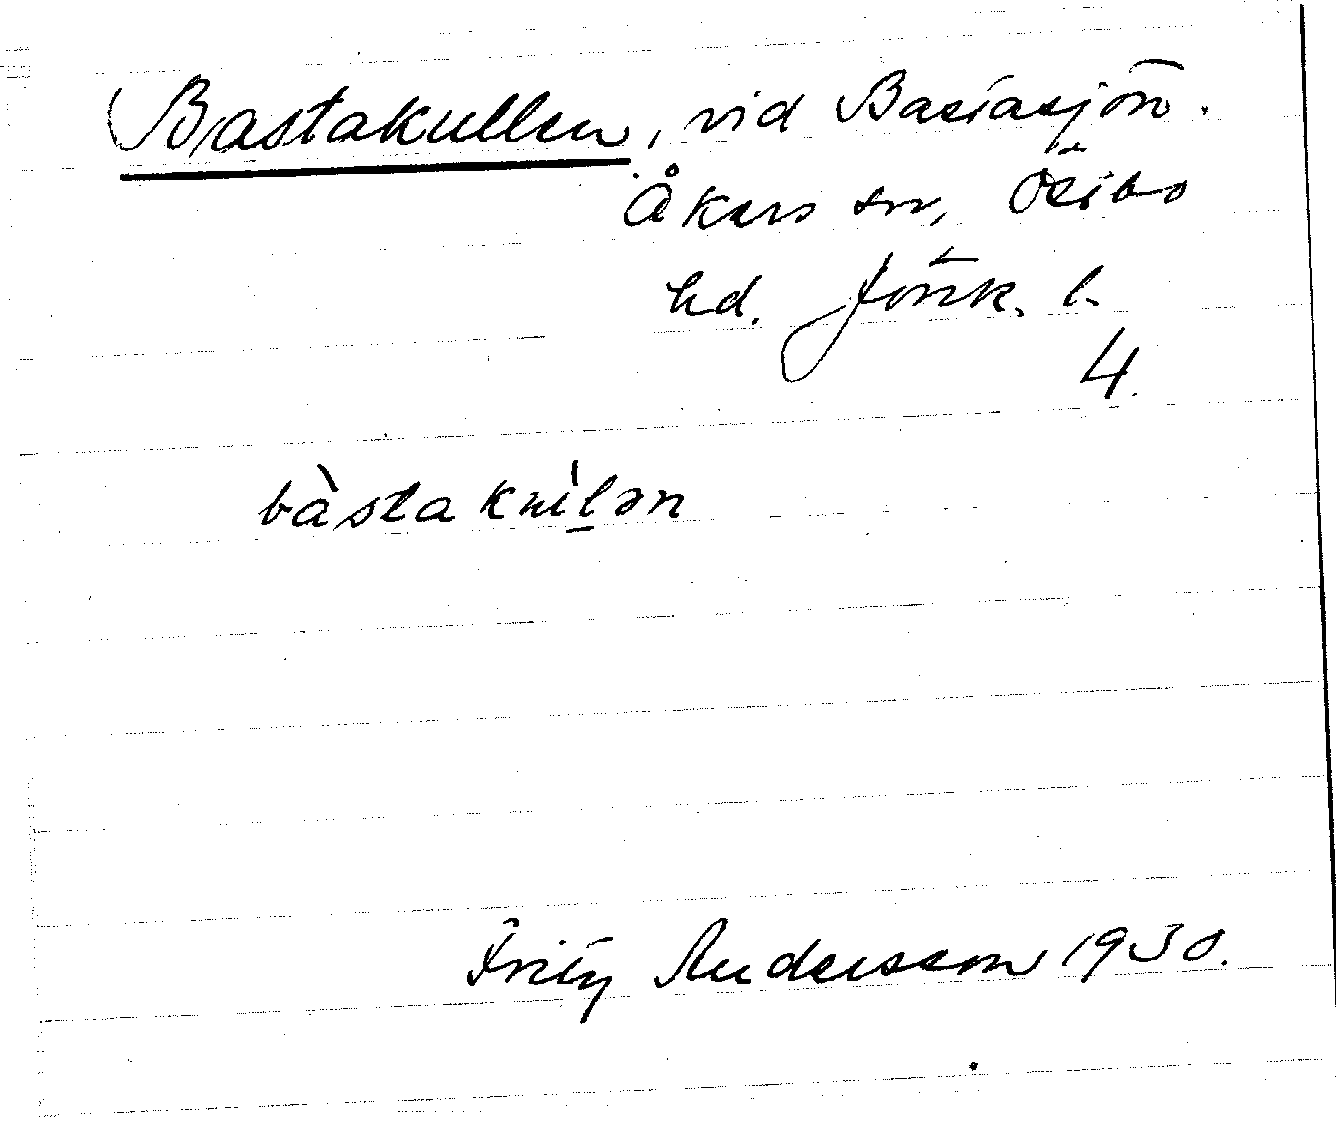 Bastakullen, vid Bastasjön.
Åkers sn, Östbo
hd. Jönk. l.
4.
bàstaku̇l̲ən
Fritz Andersson 1930.